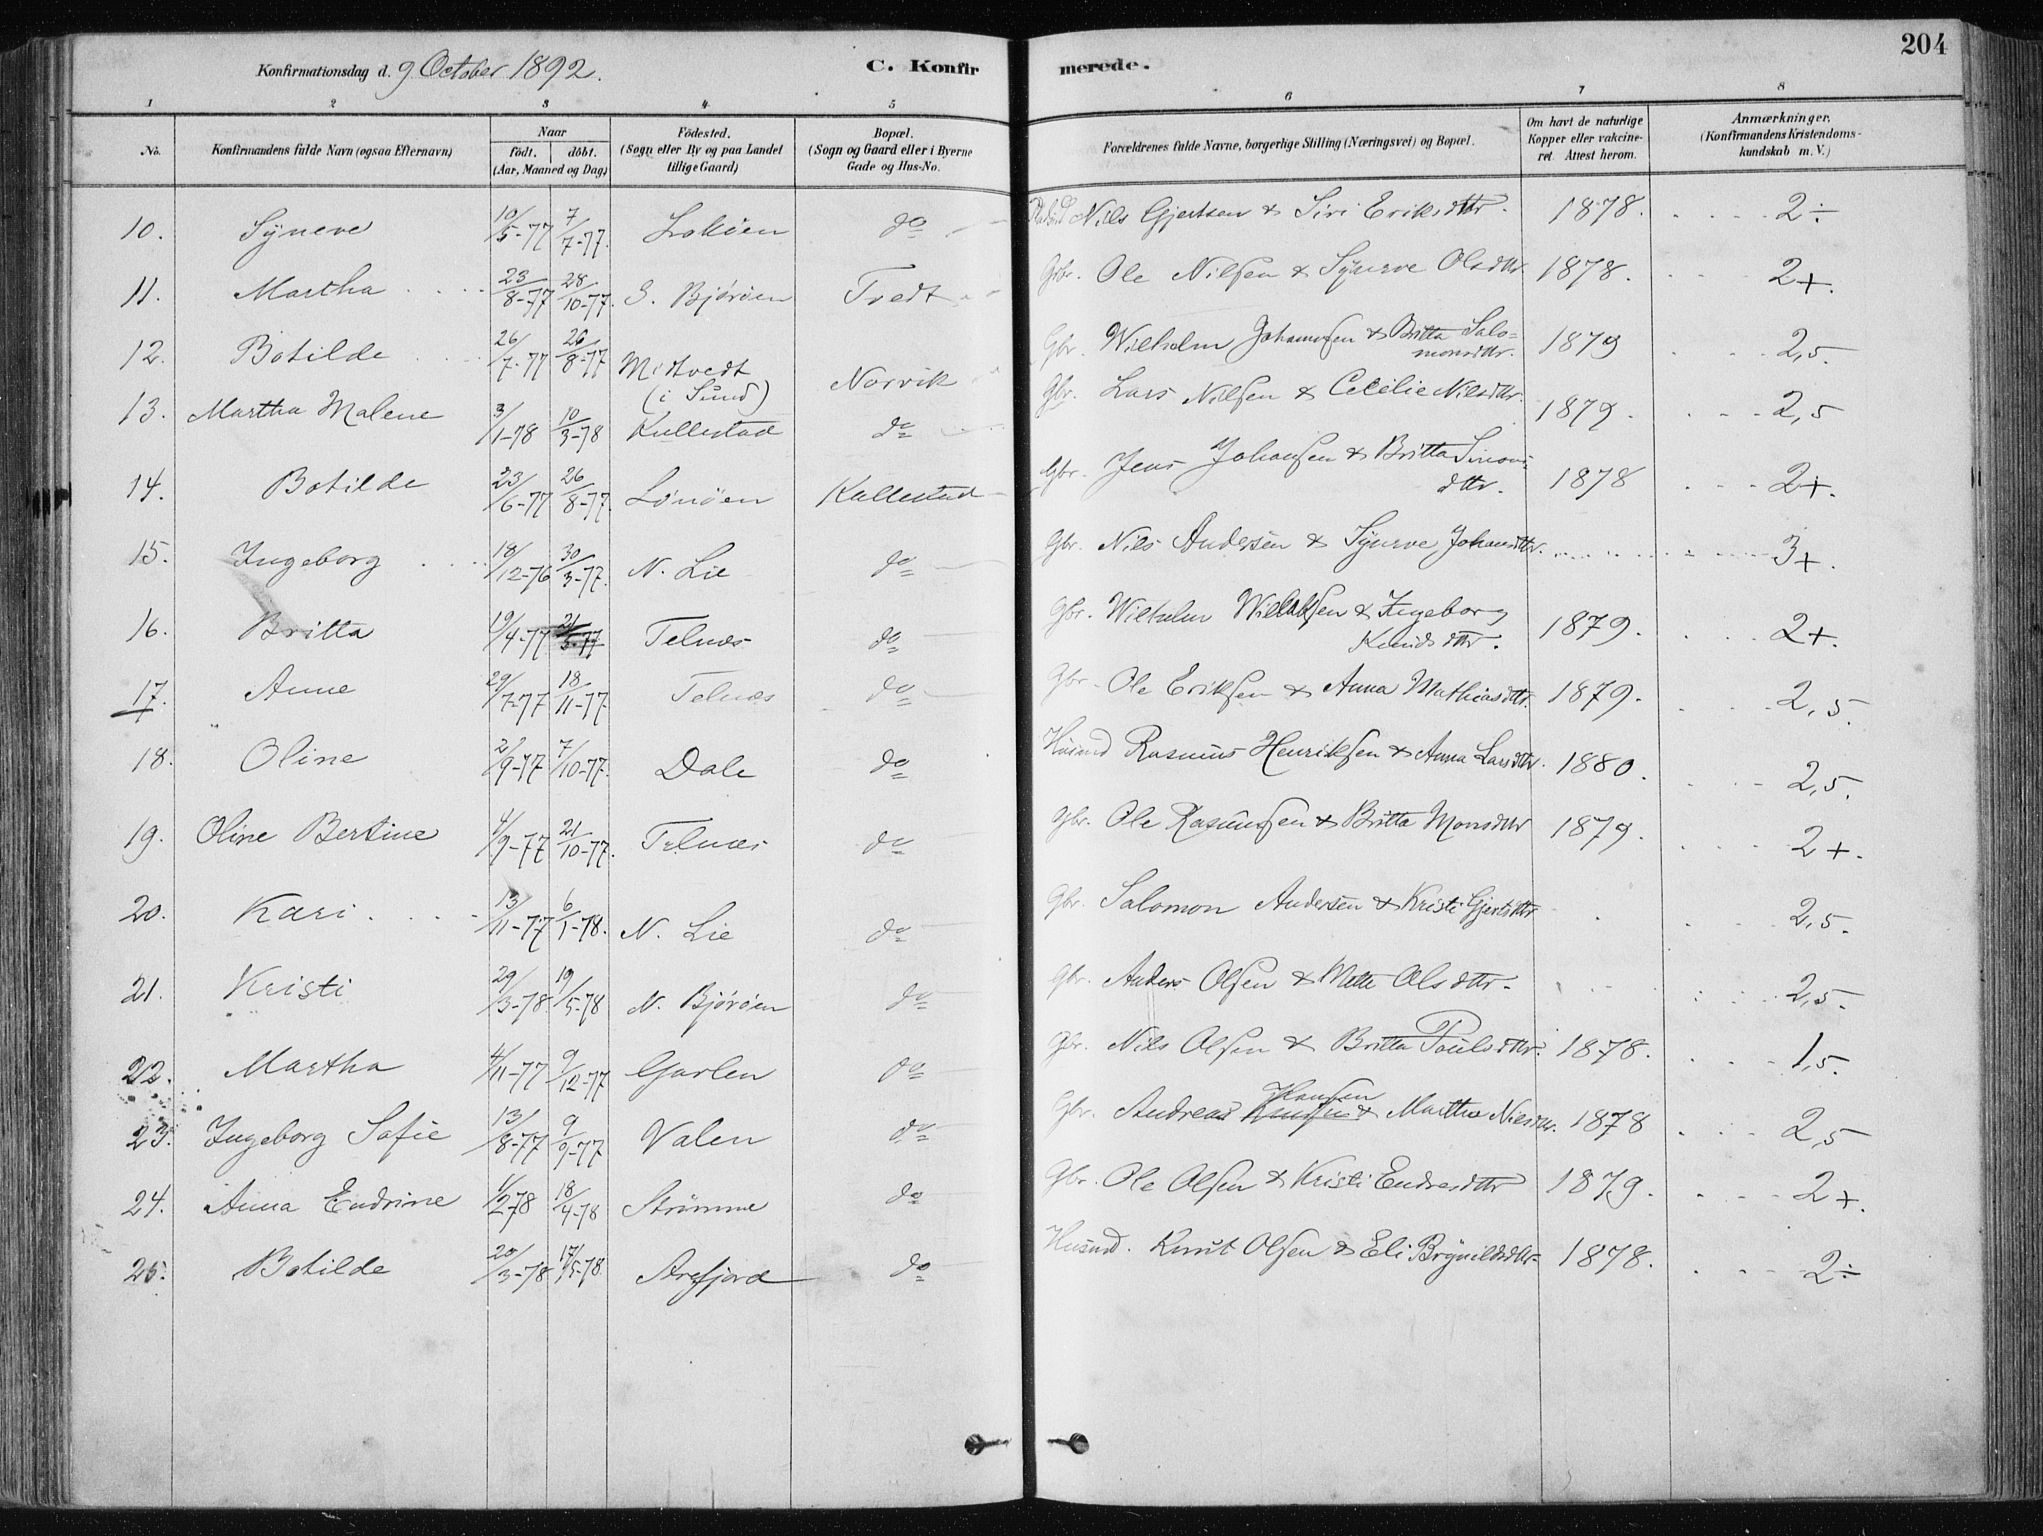 204
Konfirmationsdag d. 9 October 1892. C. Konfirmerede.
1 2 3 4 5 6 7 8
No. Konfirmandens fulde Navn (ogsaa Efternavn) Naar født, døbt. (Aar, Maaned og Dag) Fødested. (Sogn eller By og paa Landet tillige Gaard) Bopæl. (Sogn og Gaard eller i Byerne Gade og Hus-No. Forældrenes fulde Navne, borgerlige Stilling (Næringsvei) og Bopæl. Om havt de naturlige Kopper eller vakcineret. Attest herom. Anmærkninger. (Konfirmandens Kristendomskundskab m. V.)
10. Syneve 10/5-77 7/7-77. Lokøen do Nils Gjertsen & Siri Eriksdttr. 1878. 2÷
11. Martha 23/8-77 28/10-77. S. Bjørøen Tvedt Gbr. Ole Nilsen & Syneve Olsdttr 1878. 2+.
12. Botilde 26/7-77 26/8-77 Midtvedt (i Sund) Norvik Gbr. Wilhelm Johannesen & Britta Salomonsdttr. 1879 2,5.
13. Martha Malene 3/1-78 10/3-78 Kallestad do Gbr. Lars Nilsen & Cecilie Nilsdttr. 1879. 2,5
14. Botilde 23/6-77 26/8-77. Lønøen Kallestad Gbr. Jens Johansen & Britta Simonsdttr. 1878 2+.
15. Ingeborg 18/12-76 30/3-77. N. Lie do Gbr. Nils Andersen & Syneve Johansdttr. 3+.
16. Britta 19/4-77 21/5-77 Telnæs do Gbr. Wilhelm Willumsen & Ingeborg Knudsdttr. 1879. 2+.
17. Anne 29/7-77 18/11-77 Telnæs do Gbr. Ole Eriksen & Anna Mathiasdttr. 1879. 2,5.
18. Oline 2/9-77 7/10-77. Dale do Husmd Rasmus Henriksen & Anna Larsdttr. 1880. 2,5.
19. Oline Bertine 4/9-77 21/10-77. Telnæs do Gbr. Ole Rasmussen & Britta Monsdttr 1879. 2+.
20. Kari 13/11-77 6/1-78. N. Lie do Gbr. Salomon Andersen & Kristi Gjertsdttr 2,5.
21. Kristi 29/3-78 19/5-78 N. Bjørøen do Gbr. Anders Olsen & Mette Olsdttr. 2,5.
22. Martha 4/11-77 9/12-77 Garlen do Gbr. Nils Olsen & Britta Poulsdttr. 1878. 1,5.
23. Ingeborg Sofie 13/8-77 9/9-77 Valen do Gbr. Andreas Hansen & Martha Nilsdttr. 1878 2,5
24. Anna Endrine 1/2-78 18/4-78 Strømme do Gbr. Ole Olsen & Kristi Endresdttr 1879. 2+.
25. Botilde 20/3-78 17/5-78. Arefjord do Husmd. Knut Olsen & Eli Brynildsdttr 1878. 2÷